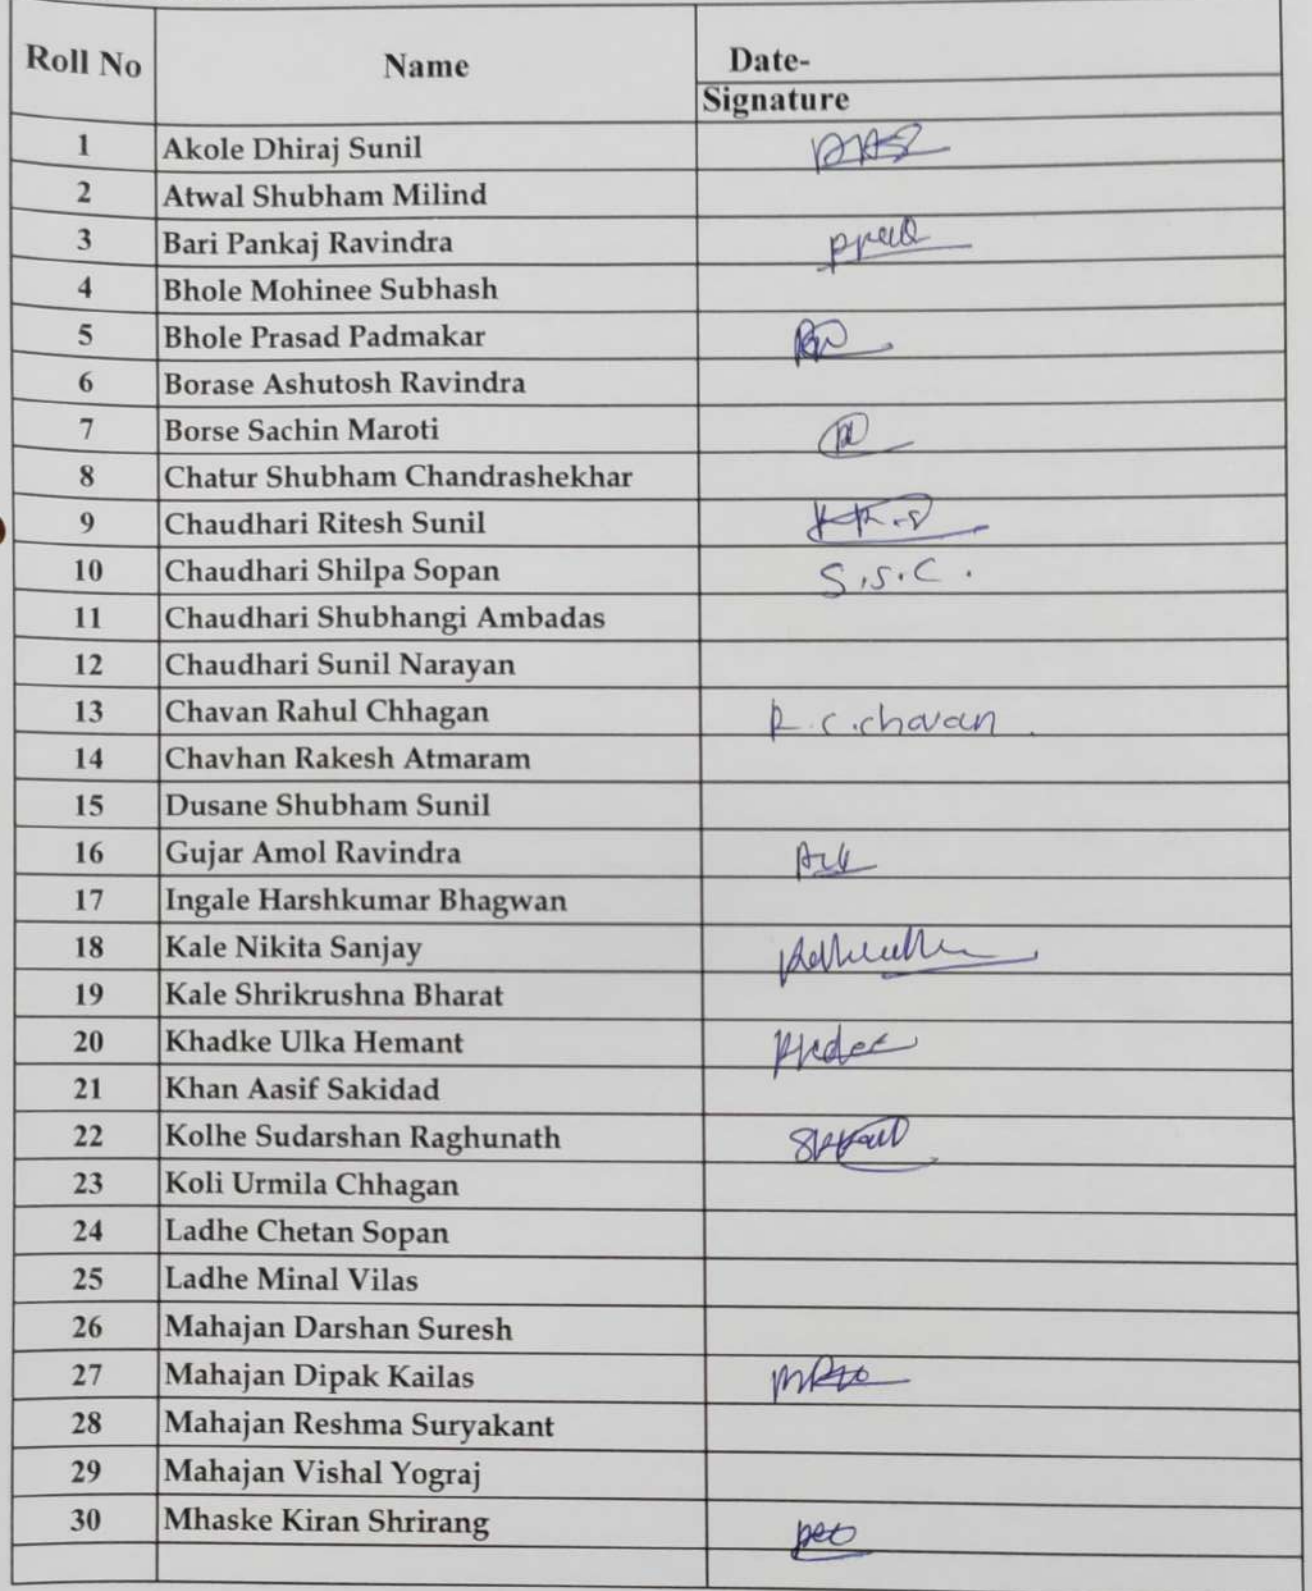 Roll No Name Date-
Signature
1 Akole Dhiraj Sunil
2 Atwal Shubham Milind
3 Bari Pankaj Ravindra
4 Bhole Mohinee Subhash
5 Bhole Prasad Padmakar
6 Borase Ashutosh Ravindra
7 Borse Sachin Maroti
8 Chatur Shubham Chandrashekhar
9 Chaudhari Ritesh Sunil
10 Chaudhari Shilpa Sopan S.S.C.
11 Chaudhari Shubhangi Ambadas
12 Chaudhari Sunil Narayan
13 Chavan Rahul Chhagan R.C.chavan.
14 Chavhan Rakesh Atmaram
15 Dusane Shubham Sunil
16 Gujar Amol Ravindra
17 Ingale Harshkumar Bhagwan
18 Kale Nikita Sanjay
19 Kale Shrikrushna Bharat
20 Khadke Ulka Hemant
21 Khan Aasif Sakidad
22 Kolhe Sudarshan Raghunath
23 Koli Urmila Chhagan
24 Ladhe Chetan Sopan
25 Ladhe Minal Vilas
26 Mahajan Darshan Suresh
27 Mahajan Dipak Kailas
28 Mahajan Reshma Suryakant
29 Mahajan Vishal Yograj
30 Mhaske Kiran Shrirang